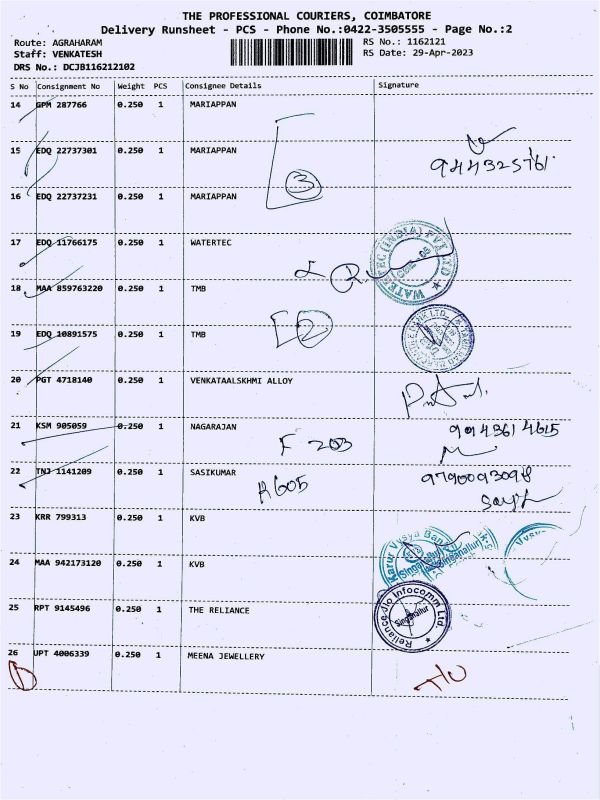 THE PROFESSIONAL COURIERS, COIMBATORE
Delivery Runsheet - PCS - Phone No.:0422-3505555 - Page No.:2
Route: AGRAHARAM
RS No.: 1162121
Staff: VENKATESH
RS Date: 29-Apr-2023
DRS No.: DCJB116212102
S No Consignment No Weight PCS Consignee Details Signature
14 GPM 287766 0.250 1 MARIAPPAN
15 EDQ 22737301 0.250 1 MARIAPPAN
9443257161
3
16 EDQ 22737231 0.250 1 MARIAPPAN
17 EDQ 11766175 0.250 1 WATERTEC
WATERTEC (INDIA) PVT LTD
18 MAA 859763220 0.250 1 TMB
2
19 EDQ 10891575 0.250 1 TMB
20 PGT 4718140 0.250 1 VENKATAALSKHMI ALLOY
21 KSM 905059 0.250 1 NAGARAJAN
F 203
9943614615
22 TNJ 1141209 0.250 1 SASIKUMAR
A605
9790093098
23 KRR 799313 0.250 1 KVB
Karur Vysya Bank
Singanallur
24 MAA 942173120 0.250 1 KVB
25 RPT 9145496 0.250 1 THE RELIANCE
Reliance Jio Infocomm Ltd
Singanallur
26 UPT 4006339 0.250 1 MEENA JEWELLERY